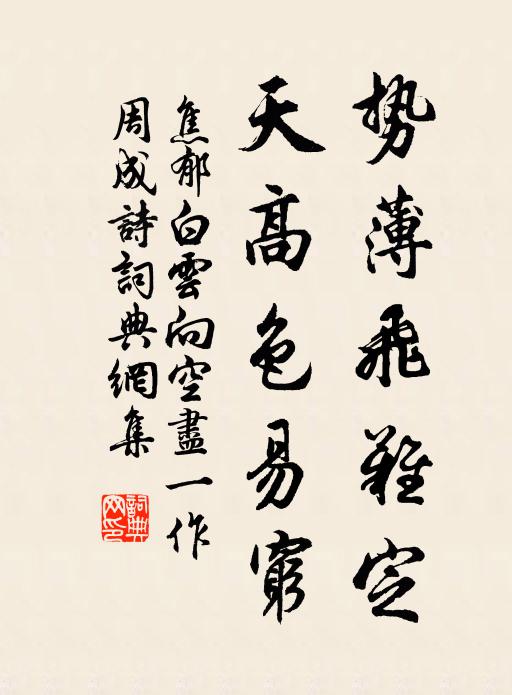 势薄飛難定
天高色易窮
焦郁白雲向空盡一作
周成詩詞典網集
詞典網印